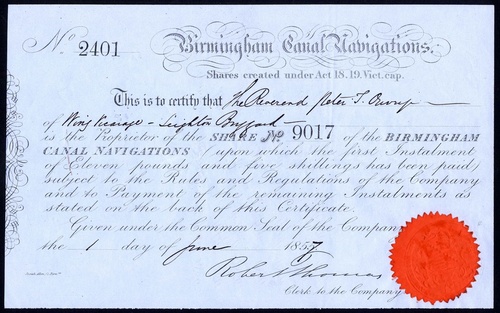 No 2401 Birmingham Canal Navigations.
Shares created under Act 18.19. Vict. cap.
This is to certify that The Reverend Peter T. Ouvry
of Wing Vicarage - Leighton Buzzard
is the Proprietor of the SHARE No. 9017 of the BIRMINGHAM
CANAL NAVIGATIONS (upon which the first Instalment
of Eleven pounds and five shillings has been paid,)
subject to the Rules and Regulations of the Company
and to Payment of the remaining Instalments as
stated on the back of this Certificate.
Given under the Common Seal of the Company
the 1 day of June 1857
Robert Thomas
Clerk to the Company